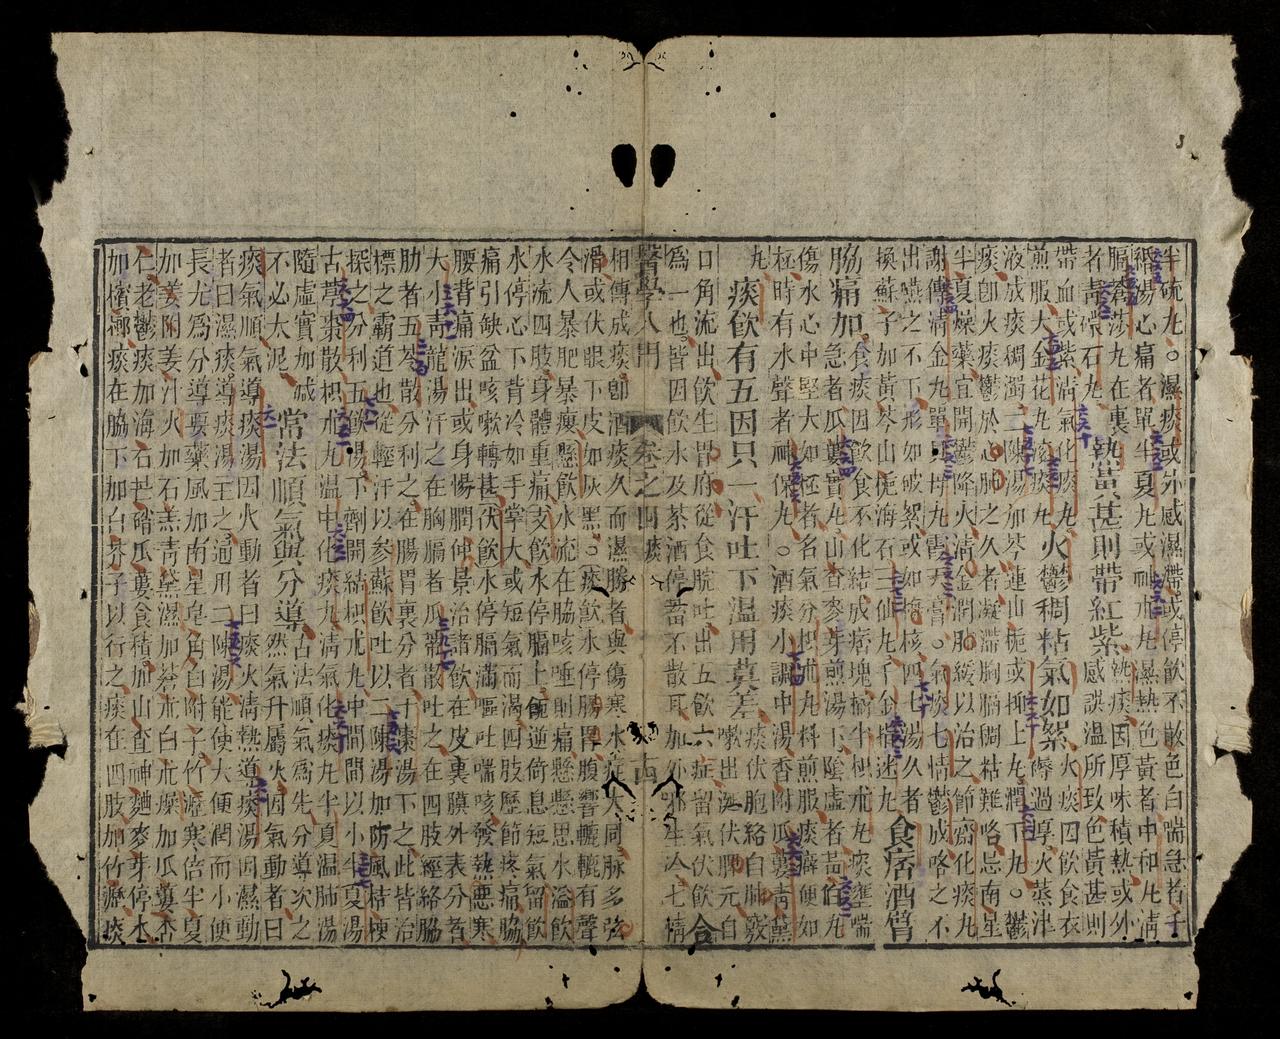 半硫丸。濕痰或外感濕滯或停飲不散色白喘急者千
緡湯心痛者單半夏丸或神朮丸濕熱色黃者中和丸淸
膈蒼莎丸在裏熱當甚則帶紅紫熱痰因厚味積熱或外
者靑礞石丸感誤溫所致色黃甚則
帶血或紫淸氣化痰丸火鬱稠粘氣如絮火痰四飲食衣
煎服大金花丸痰丸褥過厚火蒸津
液成痰稠濁二陳湯加芩連山梔或抑上丸潤下丸。鬱
痰卽火痰鬱於心肺之久者凝滯胸膈稠粘難咯忌南星
半夏燥藥宜開鬱降火淸金潤肺緩以治之節齋化痰丸
謝傳淸金丸單貝母丸霽天膏。氣痰七情鬱成咯之不
出嚥之不下形如破絮或如梅核四七湯久者食痞酒臂
換蘇子加黃芩山梔海石三仙丸千金指迷丸
脇痛加食痰因飲食不化結成痞塊橘半枳朮丸痰壅喘
急者瓜蔞實丸山查麥芽煎湯下陰虛者蒿佰丸
傷水心中堅大如杯者名氣分枳朮丸料煎服痰癖便如
柸時有水聲者神保丸。酒痰小調中湯香附瓜蔞靑黛
丸痰飲有五因只一汗吐下溫用莫差痰伏胞絡自肺竅
嗽出涎伏脾元自
口角流出飲生胃府從食脘吐出五飲六症留氣伏飲合
爲一也皆因飲水及茶酒停蓄不散耳加外邪生冷七情
醫學入門 卷之四 痰 十四
相傳成痰卽酒痰久而濕勝者與傷寒水症大同脉多弦
滑或伏眼下皮如灰黑。痰飲水停腸胃腹響轆轆有聲
令人暴肥暴瘦懸飲水流在脇咳唾則痛懸懸思水溢飲
水流四肢身體重痛支飲水停膈上輒逆倚息短氣留飲
水停心下背冷如手掌大或短氣而渴四肢歷節疼痛脇
痛引缺盆咳嗽轉甚伏飲水停膈滿嘔吐喘咳發熱惡寒
腰背痛淚出或身惕瞤仲景治諸飲在皮裏膜外表分者
大小靑龍湯汗之在胸膈者瓜蔕散吐之在四肢經絡脇
肋者五苓散分利之在腸胃裏分者十棗湯下之此皆治
標之霸道也從輕汗以參蘇飲吐以二陳湯加防風桔梗
探之分利五飲湯下劑開結枳朮丸中間間以小半夏湯
古葶棗散枳朮丸溫中化痰丸淸氣化痰丸半夏溫肺湯
隨虛實加減常法順氣與分導古法順氣爲先分導次之
不必太泥然氣升屬火因氣動者曰
痰氣順氣導痰湯因火動者曰痰火淸熱導痰湯因濕動
者曰濕痰導痰湯王之通用二陳湯能使大便潤而小便
長尤爲分導要藥風加南星皂角白附子竹瀝寒倍半夏
加姜附姜汁火加石羔靑黛濕加蒼朮白朮燥加瓜蔞杏
仁老鬱痰加海石芒硝瓜蔞食積加山査神麯麥芽停水
加檳榔痰在脇下加白芥子以行之痰在四肢加竹瀝痰